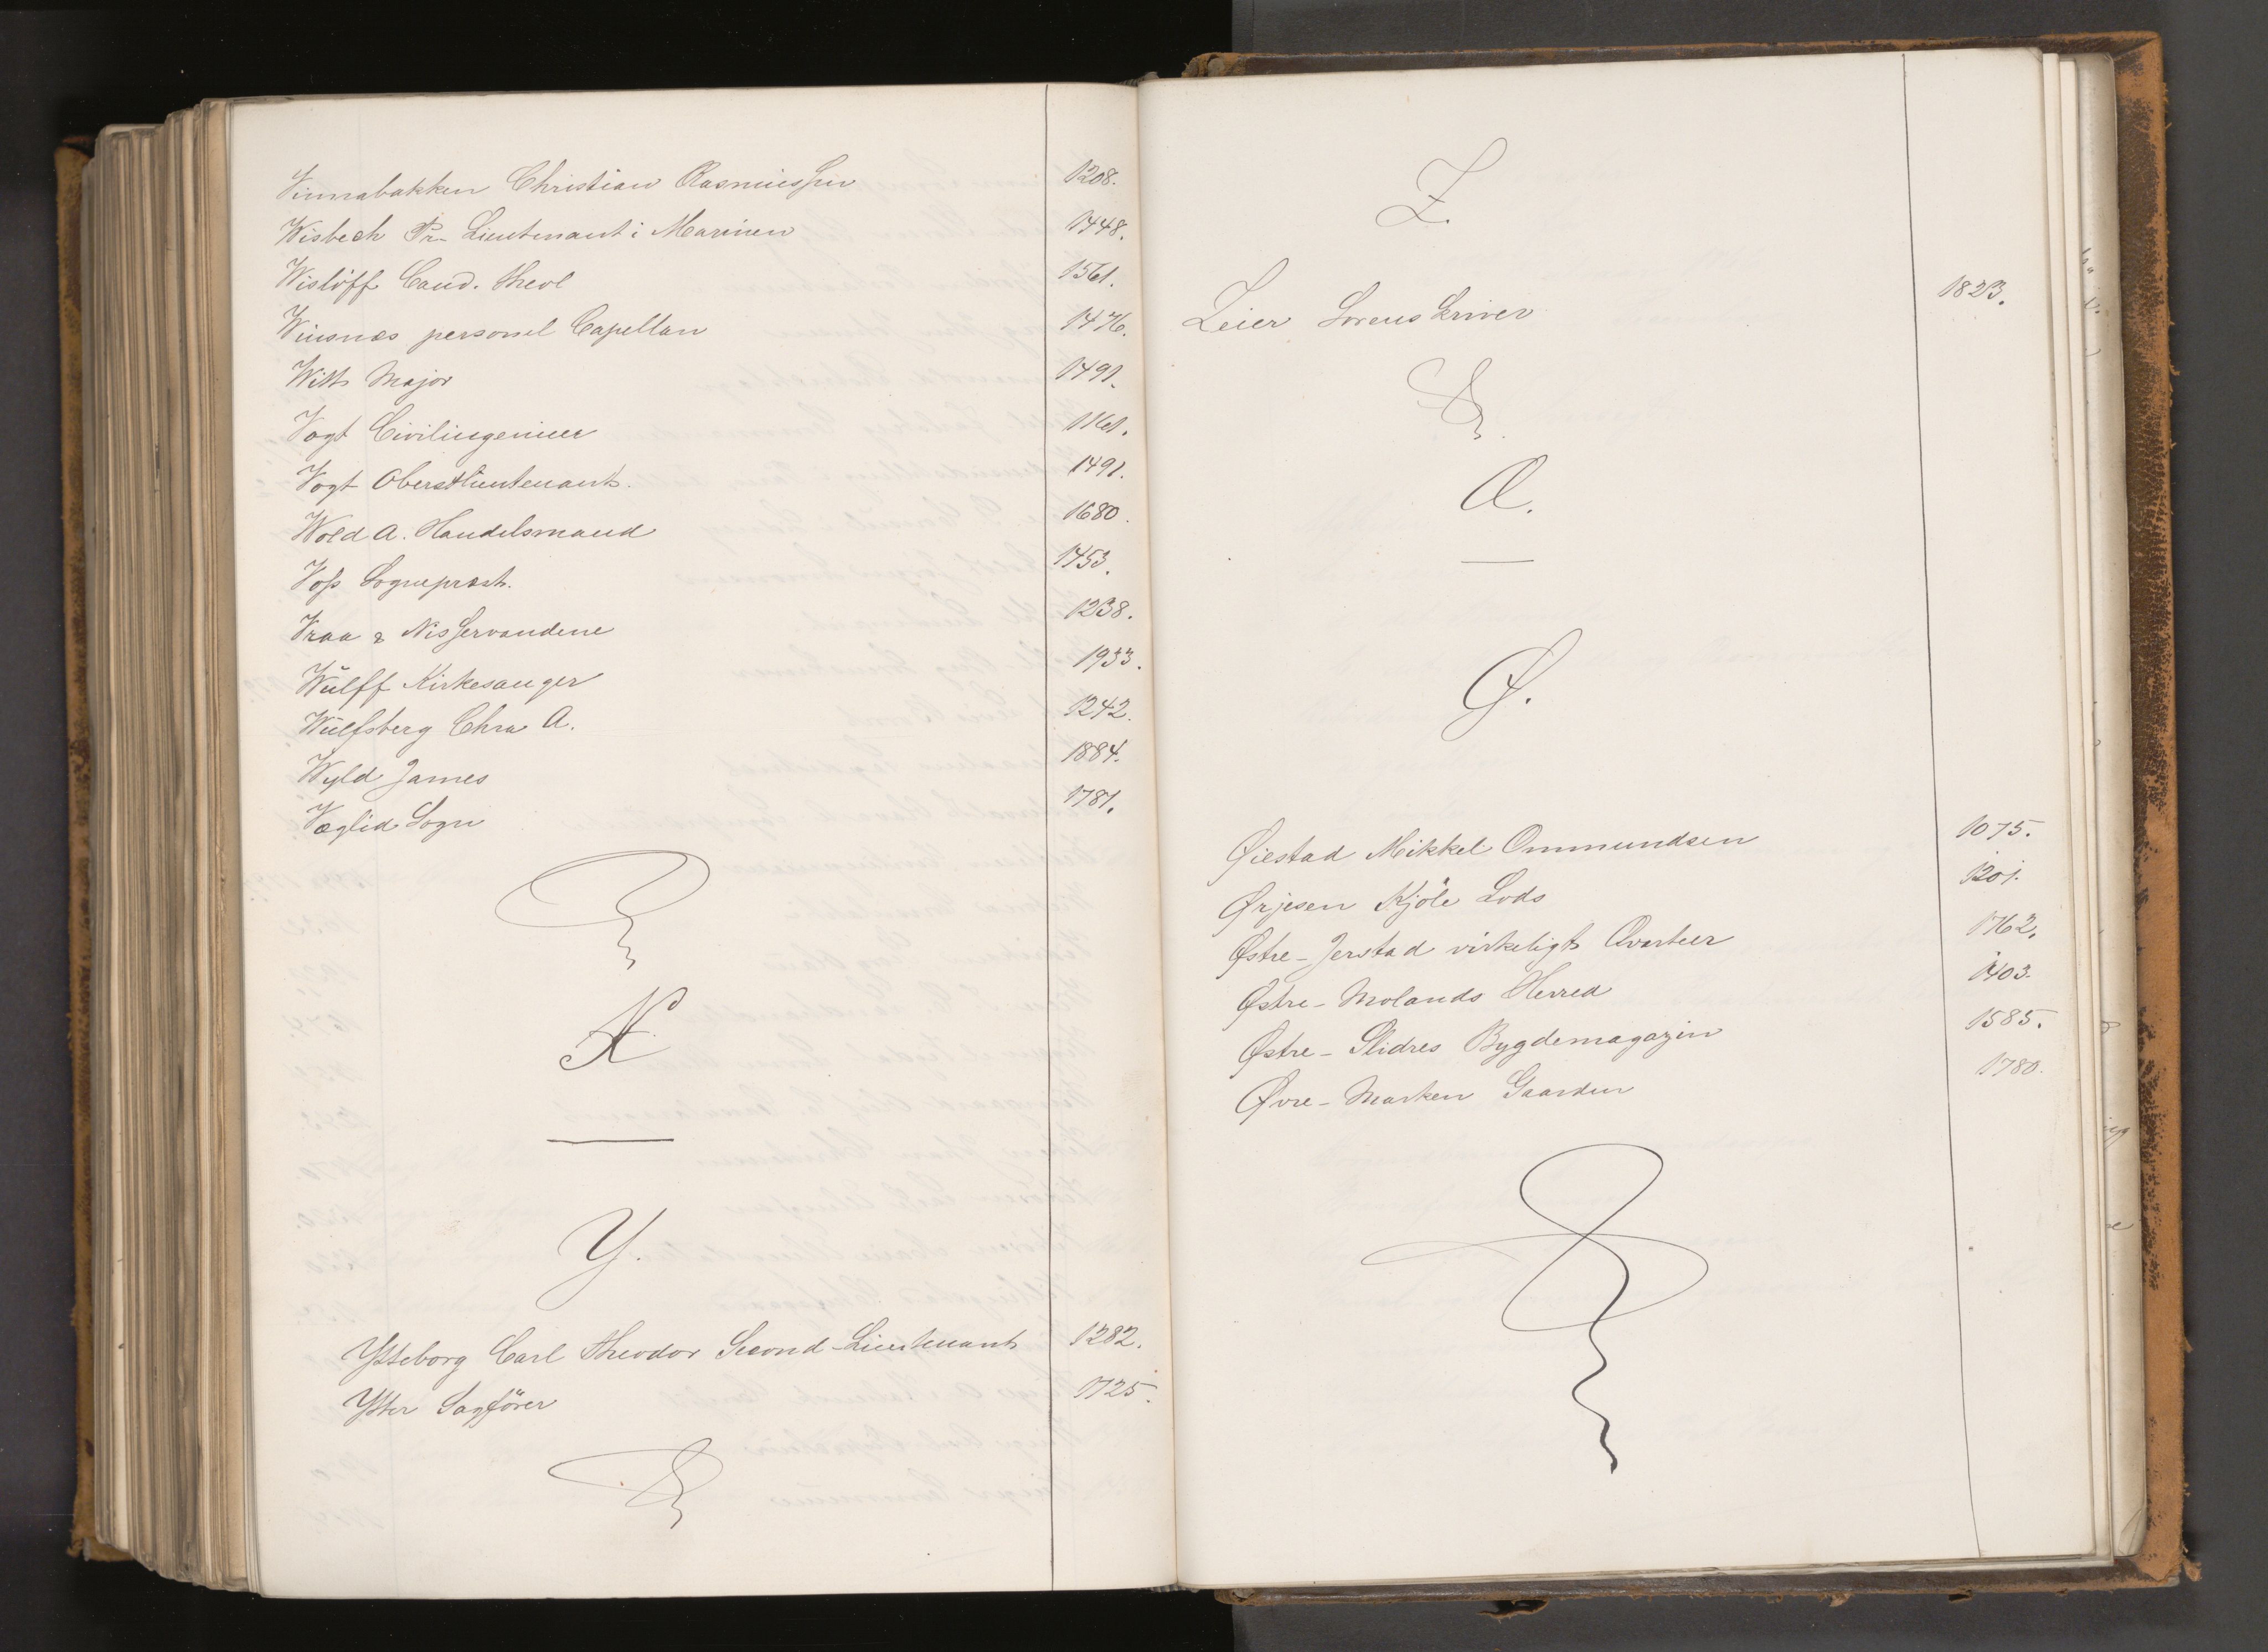 Vinnabakken Christian Rasmussen 1208.
Wisbech Pr- Lieutenant i Marinen 1448.
Wislöff Cand. theol 1561.
Wiisnæs personel Capellan 1476.
Witth Major 1491.
Vogt Civilingeniør 1161.
Vogt Oberstlieutenant. 1491.
Wold A. Handelsmand 1680.
Voss Sognepræst. 1453.
Vraa & Nisservandene 1238.
Wülff Kirkesanger 1933.
Wülfsberg Chra A. 1242.
Wyld James 1884.
Væglid Sogn 1781.
X
Y.
Ytteborg Carl Theodor Second-Lieutenant 1282.
Ytter Sagförer 1725.
Z.
Zeier Sorenskriver 1823.
Æ.
Ø.
Øiestad Mikkel Ommundsen 1075.
Ørjesen Kjöle Lods 1201.
Østre-Jerstad virkeligt Qvarteer 1762.
Østre-Molands Herred 1403.
Østre-Slidres Bygdemagazin 1585.
Øvre-Marken Gaarden 1780.